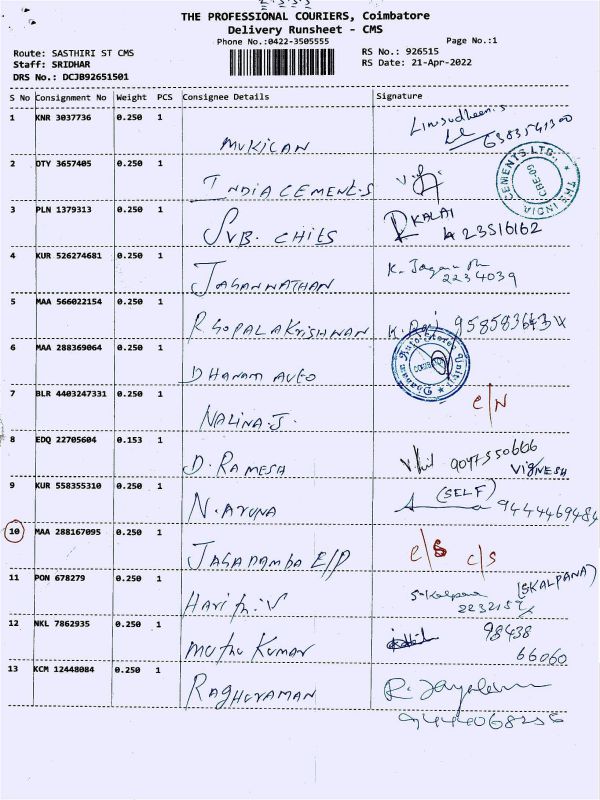 THE PROFESSIONAL COURIERS, Coimbatore
Delivery Runsheet - CMS
Phone No.:0422-3505555
Page No.:1
Route: SASTHIRI ST CMS
RS No.: 926515
Staff: SRIDHAR
RS Date: 21-Apr-2022
DRS No.: DCJB92651501
S No Consignment No Weight PCS Consignee Details Signature
1 KNR 3037736 0.250 1
MUKILAN
6383541300
2 DTY 3657405 0.250 1
INDIA CEMENTS
THE INDIA CEMENTS LTD.,
CBE-09
3 PLN 1379313 0.250 1
SVB. CHITS
KALAI
23516162
4 KUR 526274681 0.250 1
JAGANNATHAN
2234039
5 MAA 566022154 0.250 1
R. GOPALAKRISHNAN
6 MAA 288369064 0.250 1
DHANAM AUTO
7 BLR 4403247331 0.250 1
NALINA.J.
C/N
8 EDQ 22705604 0.153 1
D. RAMESH
VIGNESH
9 KUR 558355310 0.250 1
N. ARUNA
(SELF)
9444469484
10 MAA 288167095 0.250 1
JAGADAMBA E/P
C/S C/S
11 PON 678279 0.250 1
Harithi.V
S-Kalpana (SKALPANA)
12 NKL 7862935 0.250 1
Muthu Kumar
98438
66060
13 KCM 12448084 0.250 1
RAGHURAMAN